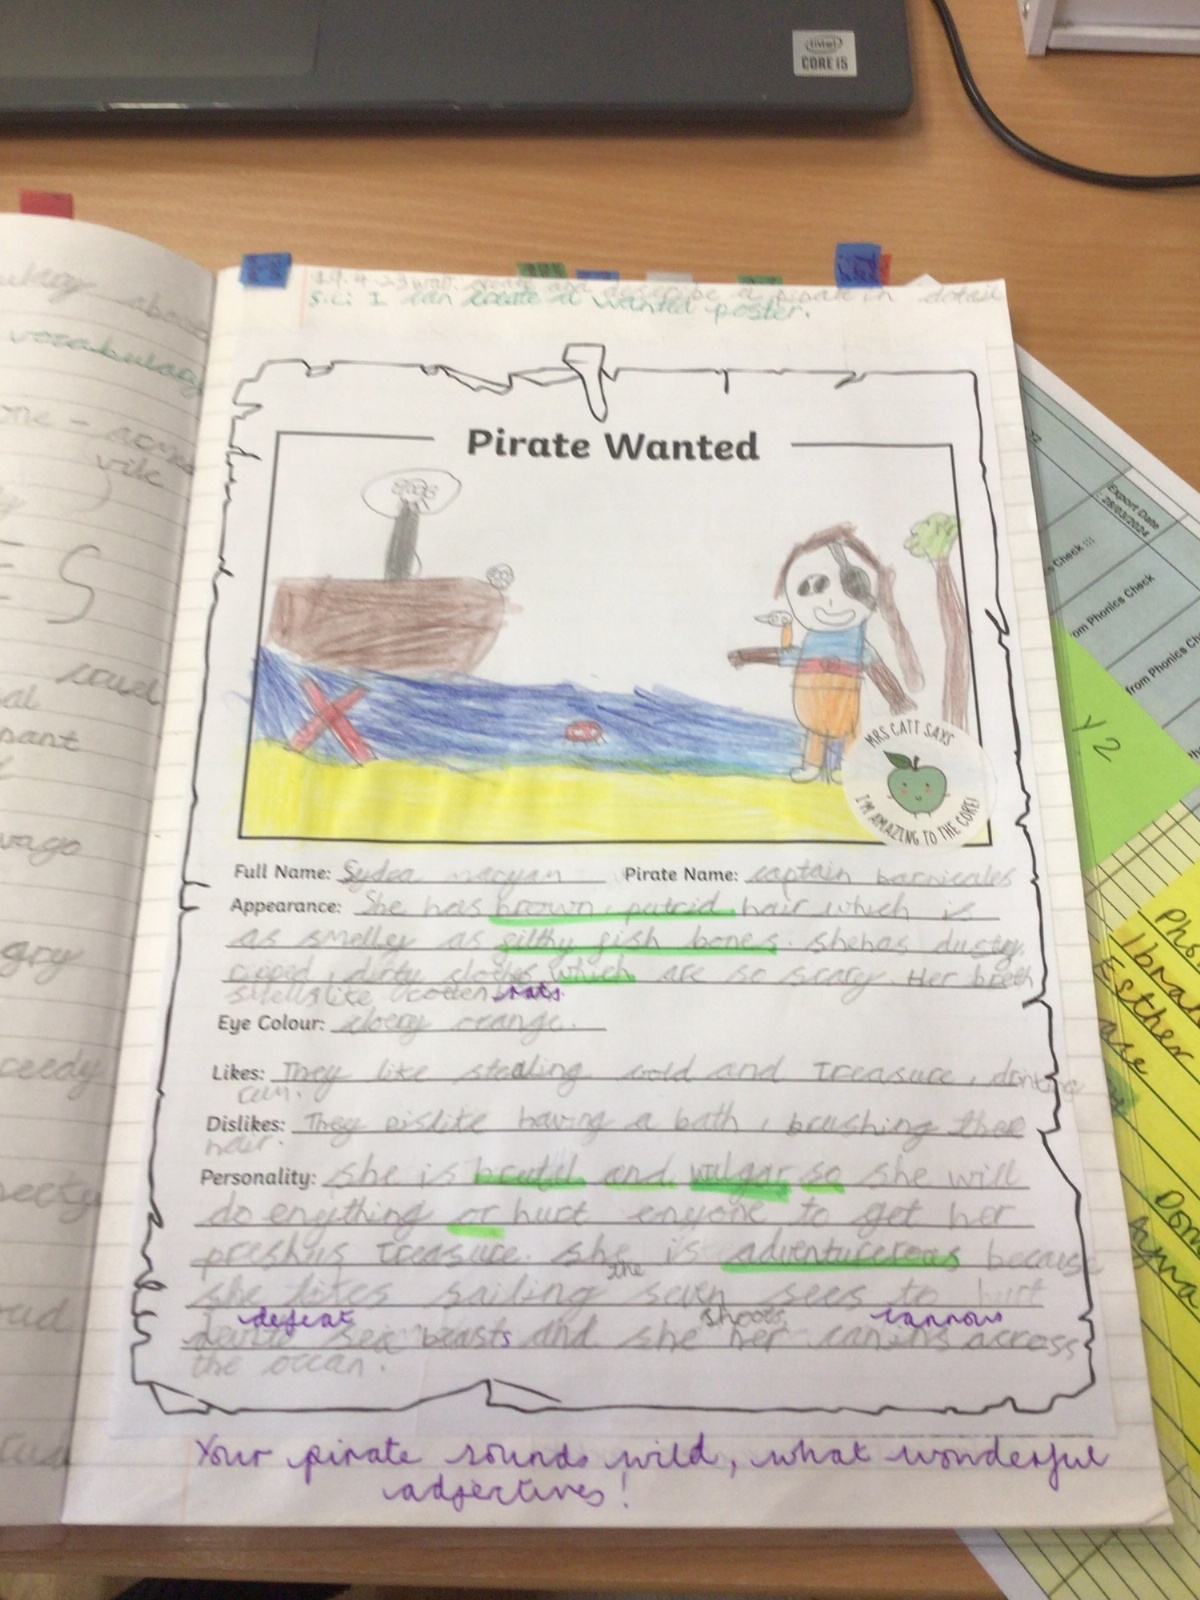 intel
CORE i5
S.C: I can create a wanted poster.
vocabulary
Pirate Wanted
Export Date
: 28/03/2024
s Check
om Phonics Check
from Phonics
Y2
MRS CATT SAYS
I'M AMAZING TO THE CORE!
Full Name: Sydea maryan Pirate Name: captain barnicales
Appearance: She has brown, putrid hair which is
as smelley as filthy fish bones. she has dusty,
ripped, dirty clothes which are so scary. Her breth
smells like rotten rats.
Eye Colour: orange.
Likes: They like stealing gold and treasure, drinking
rum.
Dislikes: They dislike having a bath, brushing thee
hair.
Personality: she is brutal and vulgar so she will
do enything or hurt enyone to get her
preshus treasure. she is adventurereous because
she likes sailing the seven sees to hurt
defeat shoots cannons
sea beasts and she her canins across
the occan.
Your pirate sounds wild, what wonderful
adjectives!
Esther